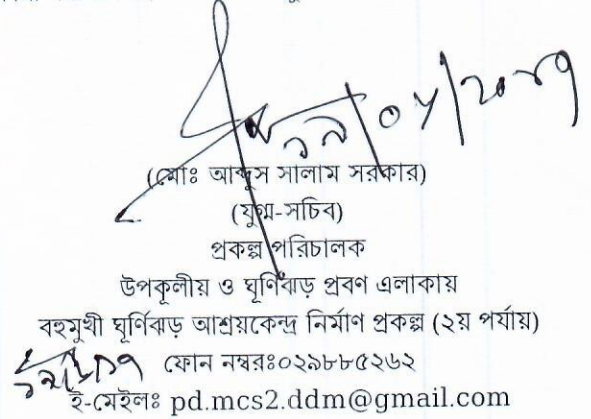 (মোঃ আব্দুস সালাম সরকার)
(যুগ্ম-সচিব)
প্রকল্প পরিচালক
উপকূলীয় ও ঘূর্ণিঝড় প্রবণ এলাকায়
বহুমুখী ঘূর্ণিঝড় আশ্রয়কেন্দ্র নির্মাণ প্রকল্প (২য় পর্যায়)
ফোন নম্বরঃ০২৯৮৮৫২৬২
ই-মেইলঃ pd.mcs2.ddm@gmail.com